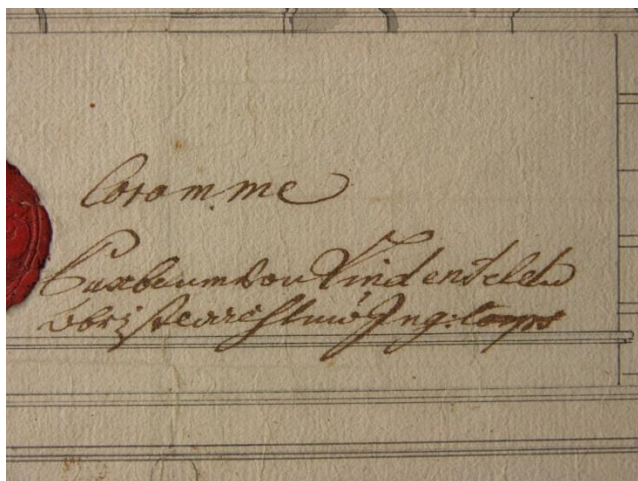 Coram me
Buxbaum von Lindenfeldn
obrist Ing: Corps